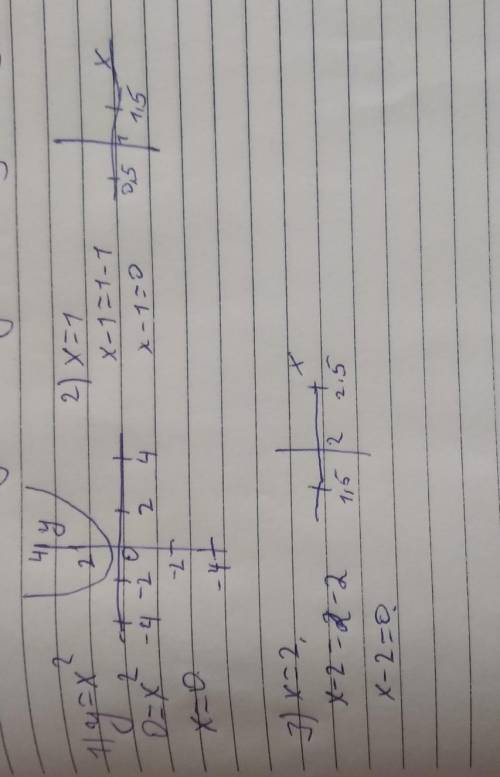 1) y=x²
0=x²
x=0
4 y
2
-4 -2 0 2 4
-2
-4
2) x=1
x-1=1-1
x-1=0
0,5 1 1,5 x
3) x=2,
x-2=2-2
x-2=0.
1,5 2 2,5 x